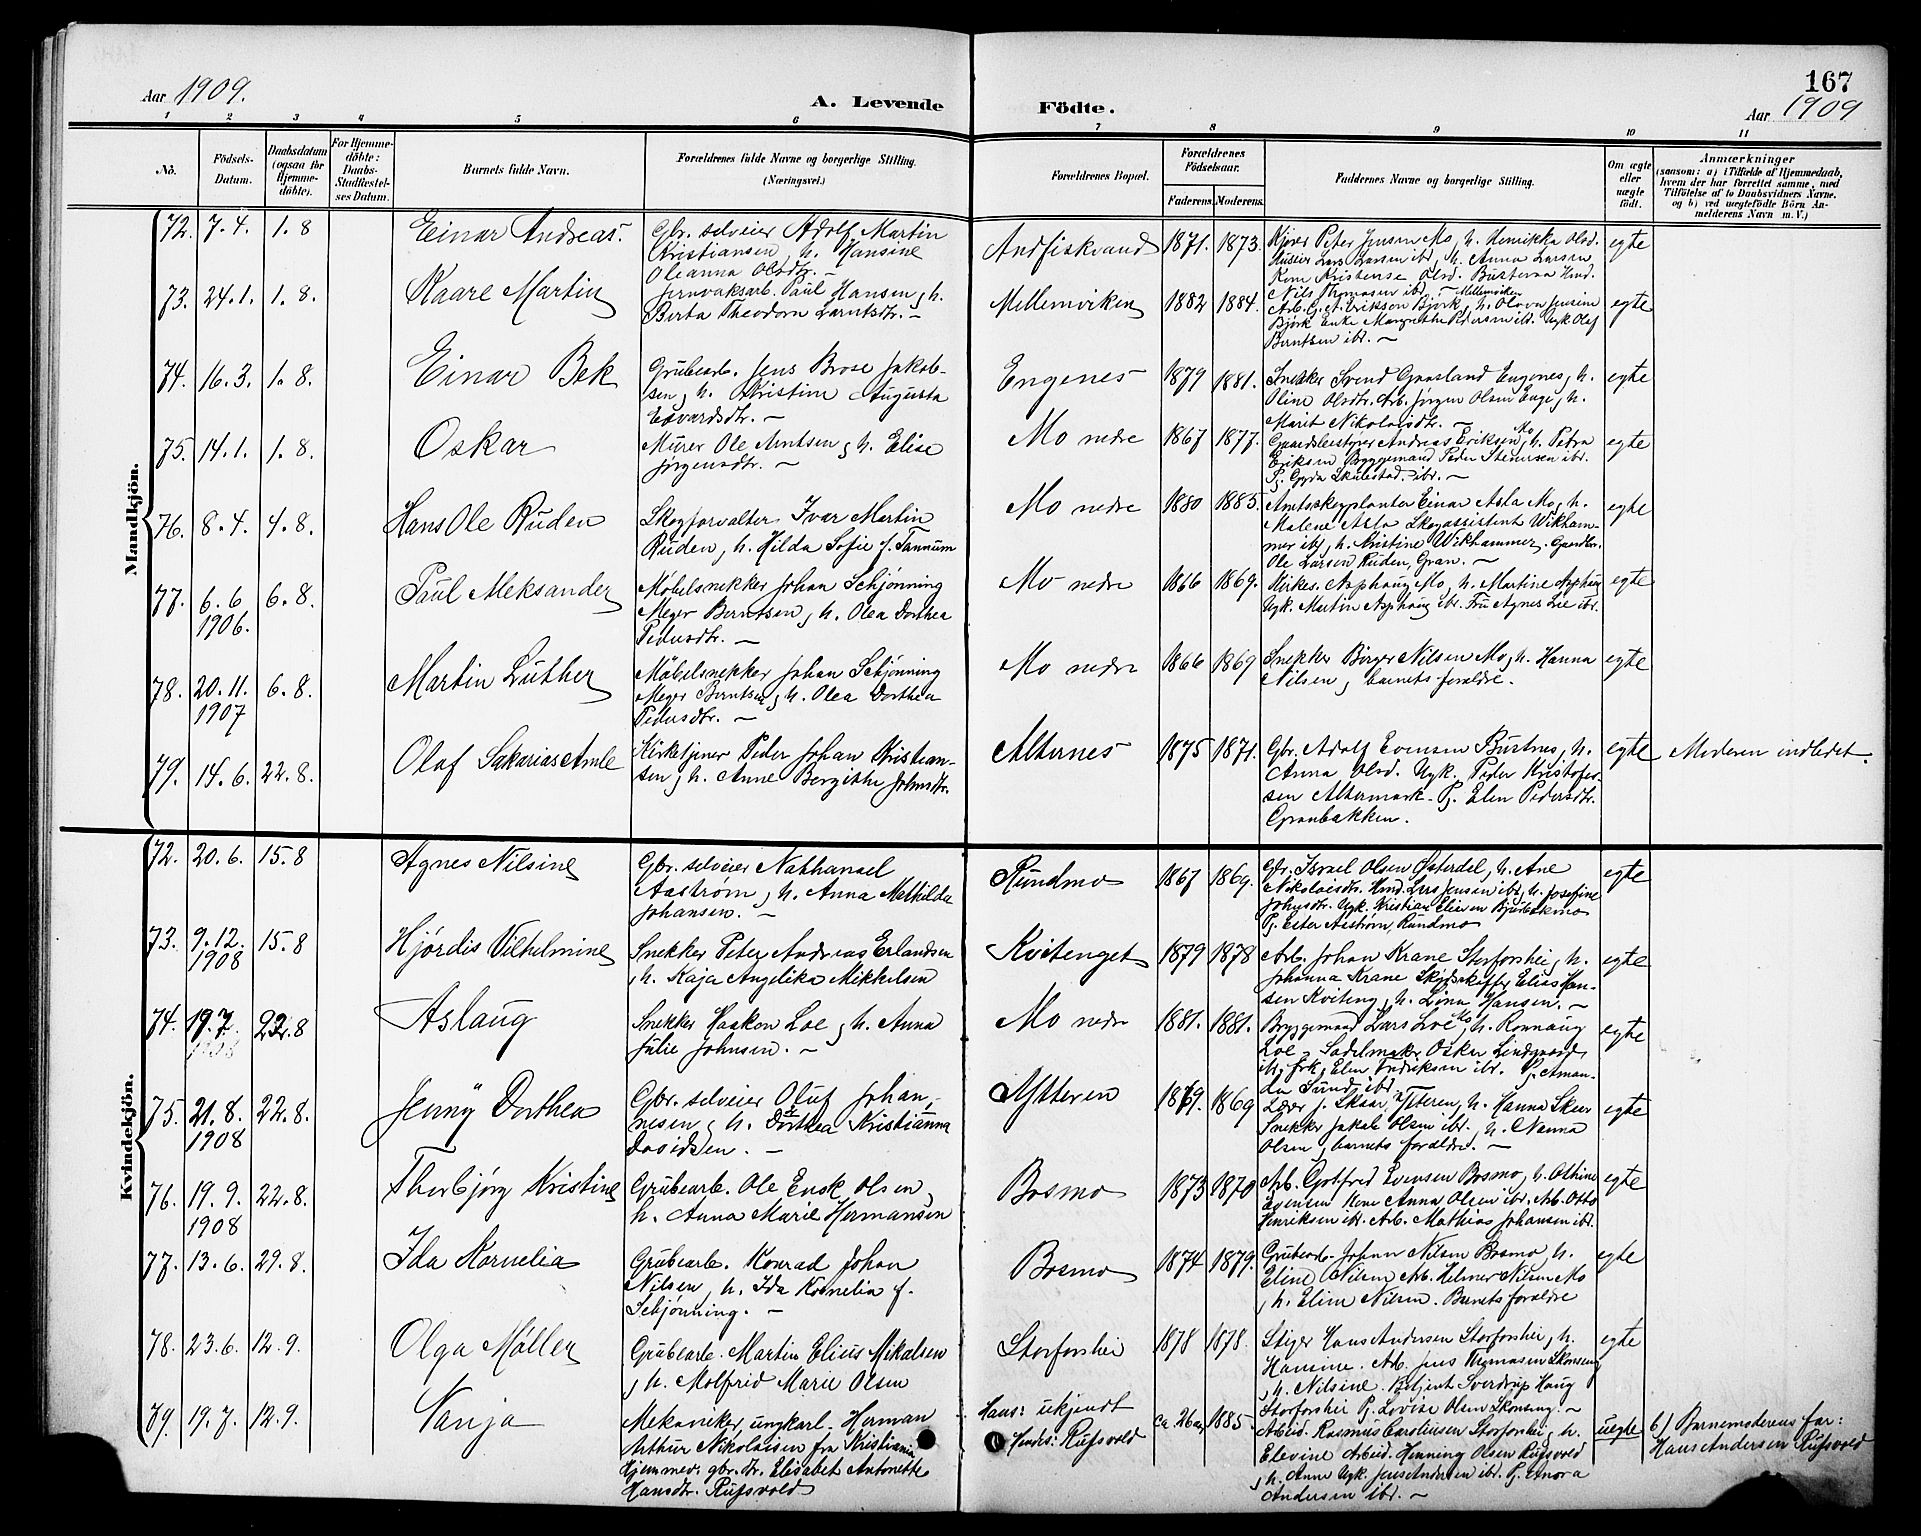 Aar 1909.
A. Levende
Födte.
167
Aar 1909
1 2 3 4 5 6 7 8 9 10 11
No.
Födsels-Datum.
Daabsdatum (ogsaa for Hjemme-döbte).
For Hjemme-döbte: Daabs-Stadfæstel-ses Datum.
Barnets fulde Navn.
Forældrenes fulde Navne og borgerlige Stilling. (Næringsvei.)
Forældrenes Bopæl.
Forældrenes Födselsaar.
Faderens Moderens.
Faddernes Navne og borgerlige Stilling.
Om ægte eller uægte födt.
Anmærkninger
(saasom: a) i Tilfælde af Hjemmedaab,
hvem der har forrettet samme, med
Tilföielse af to Daabsvidners Navne,
og b) ved uægtefödte Börn An-
melderens Navn m. V.)
Mandkjön.
72. 7.4. 1.8 Einar Andreas.
Gbr. selveier Adolf Martin
Kristiansen, h. Hansine
Oleanna Olsdtr. –
Andfiskvand 1871. 1873.
Kjører Peter Jensen Mo, h. Henrikka Olsd.
Huseier Lars Larsen ibd, h. Anna Larsen
Kone Kristense Olsd. Busteraa Hmd.
Nils Thomasen ibd. –
egte
73. 24.1. 1.8. Kaare Martin
Jernvaksarb. Paul Hansen, h.
Berta Theodora Larntsdtr. –
Mellemvirken 1882 1884.
Mellemvirken
Arb. G. A. Erikson Bjørk, h. Olava Jensine
Bjørk Enke Margrethe Pedersen ibd. Ugk Olaf
Berntsen ibr. –
egte
74. 16.3. 1.8. Einar Bek
Grubearb. Jens Brose Jakob-
sen, h. Kristine Augusta
Edvardsdtr. –
Engenes 1879 1881.
Snekker Svend Graasland Engenes, h.
Oline Olsdtr. Arb. Jørgen Olsen Enge, h.
Marit Nikolaisdtr. –
egte
75. 14.1. 1.8. Oskar
Murer Ole Arntsen, h. Elise
Jørgensdtr. –
Mo nedre 1867 1877.
Gaardsbestyrer Andreas Eriksen Mo, h. Petra
Eriksen Byggemand Peder Stenersen ibr.
Pj. Gyda Skulestad. ibr. –
egte
76. 8.4. 4.8. Hans Ole Ruden
Skogforvalter Ivar Martin
Ruden, h. Hilda Sofie f. Tannum
Mo nedre 1880 1885.
Amtsskogplanter Einar Asla Mo, h.
Malene Asla Skogassistent Wikham-
mer ibd, h. Kristine Wikhammer. Gaardbr.
Ole Larsen Ruden, Gran. –
egte
77. 6.6 1906. 6.8. Paul Aleksander
Møbelsnekker Johan Schjønning
Meyer Berntsen, h. Olea Dorthea
Pedersdtr. –
Mo nedre 1866 1869.
Kirkes. Asphaug Mo, h. Martine Asphaug
Ugk. Martin Asphaug ibr. Fru Agnes Lie ibr.
egte
78. 20.11. 1907 6.8. Martin Luther
Møbelsnekker Johan Schjønning
Meyer Berntsen, h. Olea Dorthea
Pedersdtr. –
Mo nedre 1866 1869
Snekker Børger Nilsen Mo, h. Hanna
Nilsen, barnets forældre.
egte
79. 14.6. 22.8. Olaf Sakarias Amle
Kirketjener Peder Johan Kristian-
sen, h. Anne Bergithe Johnsdtr.
Alternes 1875 1871.
Gbr. Adolf Evensen Bustnes, h.
Anna Olsd. Ugk. Peder Kristofer-
sen Altermark. Pj. Elen Pedersdtr.
Granbakken.
egte Moderen indledet.
Kvindekjön.
72. 20.6. 15.8 Agnes Nilsine
Gbr. selveier Nathanael
Aastrøm, h. Anna Mathilda
Johansen. –
Rundmo 1867 1869.
Gbr. Israel Olsen Østerdal, h. Ane
Nikolaisdtr. Hmd. Lars Jensen ibd, h. Josefine
Johnsdtr. Ugk. Kristian Eliasen Bjellaakmo
Pj. Ester Aastrøm, Rundmo
egte
73. 9.12. 1908 15.8 Hjørdis Vilhelmine
Snekker Peter Andreas Erlandsen
, h. Kaja Angelika Mikkelsen
Kvitenget 1879 1878
Arb. Johan Krane Storforshei, h.
Johanna Krane Skydsskaffer Elias Han-
sen Kviteng, h. Lina Hansen. –
egte
74. 19.7. 1908 22.8 Aslaug
Snekker Haakon Loe, h. Anna
Julie Johnsen. –
Mo nedre 1881. 1881.
Byggemand Lars Loe Mo, h. Rønnaug
Loe, Sadelmaker Oskar Lindgaard
ib, frk. Elen Fredriksen ibr. Pj. Aman-
da Sund ibd.
egte
75. 21.8. 1908 22.8. Jenny Dorthea
Gbr. selveier Oluf Johan-
nesen, h. Dorthea Kristianna
Davidsen. –
Ytteren 1869. 1869
Lærer J. Skaar, Ytteren, h. Hanna Skar
Snekker Jakob Olsen ibd, h. Nanna
Olsen, barnets forældre. –
egte
76. 19.9. 1908 22.8. Thorbjørg Kristine
Grubearb. Ole Ensk Olsen,
h. Anna Marie Hermansen
Bosmo 1873 1870
Arb. Gotfred Evensen Bosmo, h. Othine
Evensen Kone Anna Olsen ibr. Arb. Otto
Henriksen ibr. Arb. Mathias Johansen ibr.
egte
77. 13.6. 29.8. Ida Kornelia
Grubearb. Konrad Johan
Nilsen, h. Ida Kornelia f.
Schjønning. –
Bosmo 1874 1879.
Grubearb. Johan Nilsen Bosmo h.
Eline Nilsen Arb. Helmer Nilsen Mo
, h. Eline Nilsen. Barnets forældre
egte
78. 23.6. 12.9. Olga Møller
Grubearb. Martin Elieus Mikalsen
, h. Molfrid Marie Olsen
Storforshei 1878 1878.
Stiger Hans Andersen Storforshei, h.
Hansine. Arb. Jens Thomasen Skonseng
, h. Nilsine. Betjent Sverdrup Haug
Storforshei Pj. Lovise Olsen Skonseng. –
egte
79. 19.7. 12.9. Vanja
Mekaniker, ungkarl Herman
Arthur Nikolaisen fra Kristiania
Hjemmev. gbr.dtr. Elisabet Antonette
Hansdtr. Rufsvold
Hans: ukjendt
Hendes: Rufsvold
ca. 26 aar 1885.
Arbeid. Rasmus Caroliusen Storforshei, h.
Elevine Arbeid. Henning Olsen Rufsvold
, h. Anne Ugk. Jens Andersen ibr. Pj. Anora
Andersen ibr. –
uegte
b) Barnemoderens far:
Hans Andersen Rufsvold